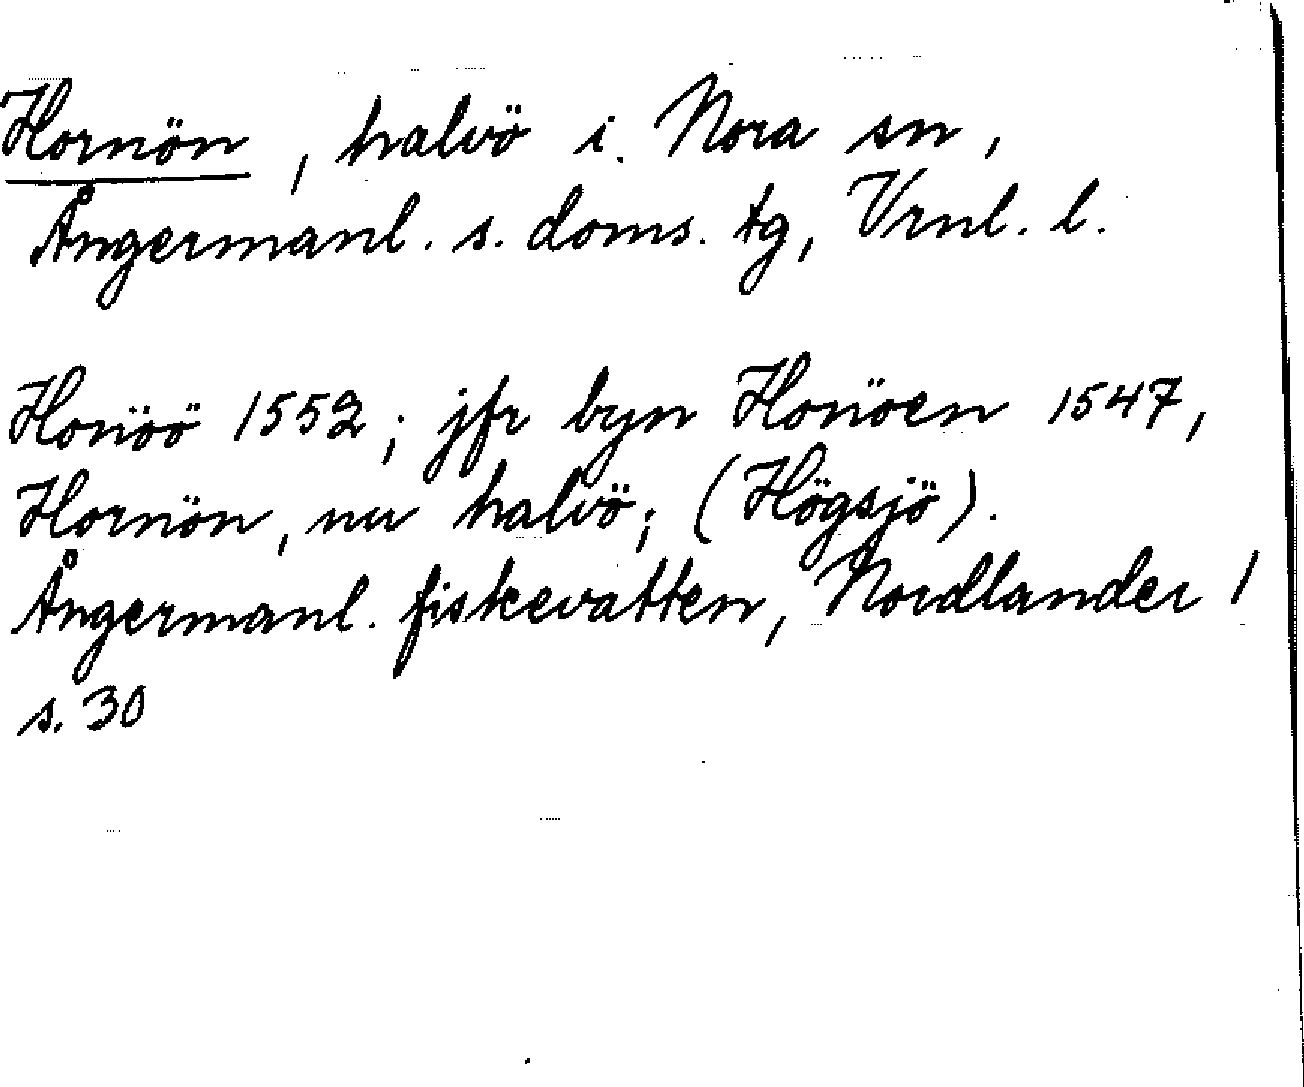 Hornön, halvö i Nora sn,
Ångermanl. s. doms. tg, Vrnl. l.
Honöö 1552; jfr byn Honöen 1547,
Hornön, nu halvö; (Högsjö).
Ångermanl. fiskevatten, Nordlander 1
s. 30